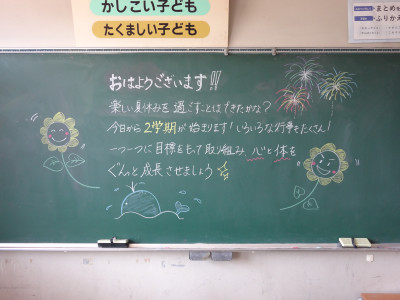 かしこい子ども
たくましい子ども
まとめ
ふりかえ
おはようございます!!!
楽しい夏休みを過ごすことはできたかな?
今日から2学期が始まります!いろいろな行事もたくさん!
一つ一つに目標をもって取り組み、心と体を
ぐんっと成長させましょう